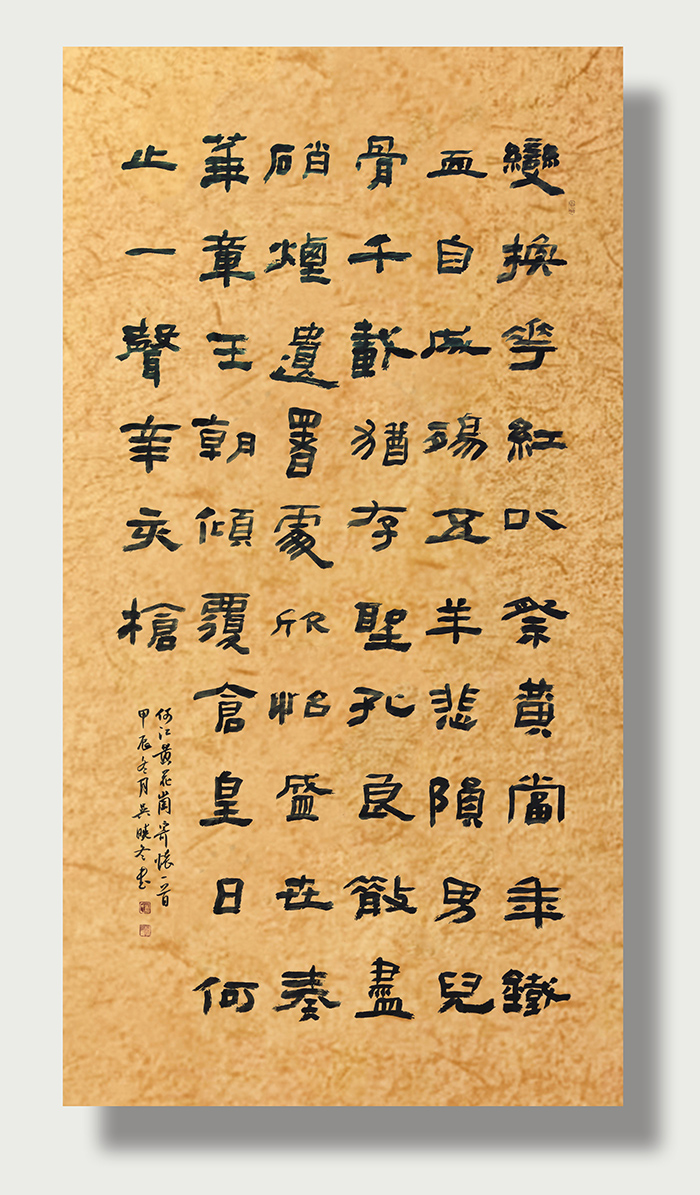 變換花紅以祭黃當年鐵
血自成殤五羊悲隕男兒
骨千載猶存聖孔良散盡
硝煙遺署處欣怡盛世奏
華章王朝傾覆倉皇日何
止一聲辛亥槍
何江黃花崗寄懷一首
甲辰冬月吳映冬書